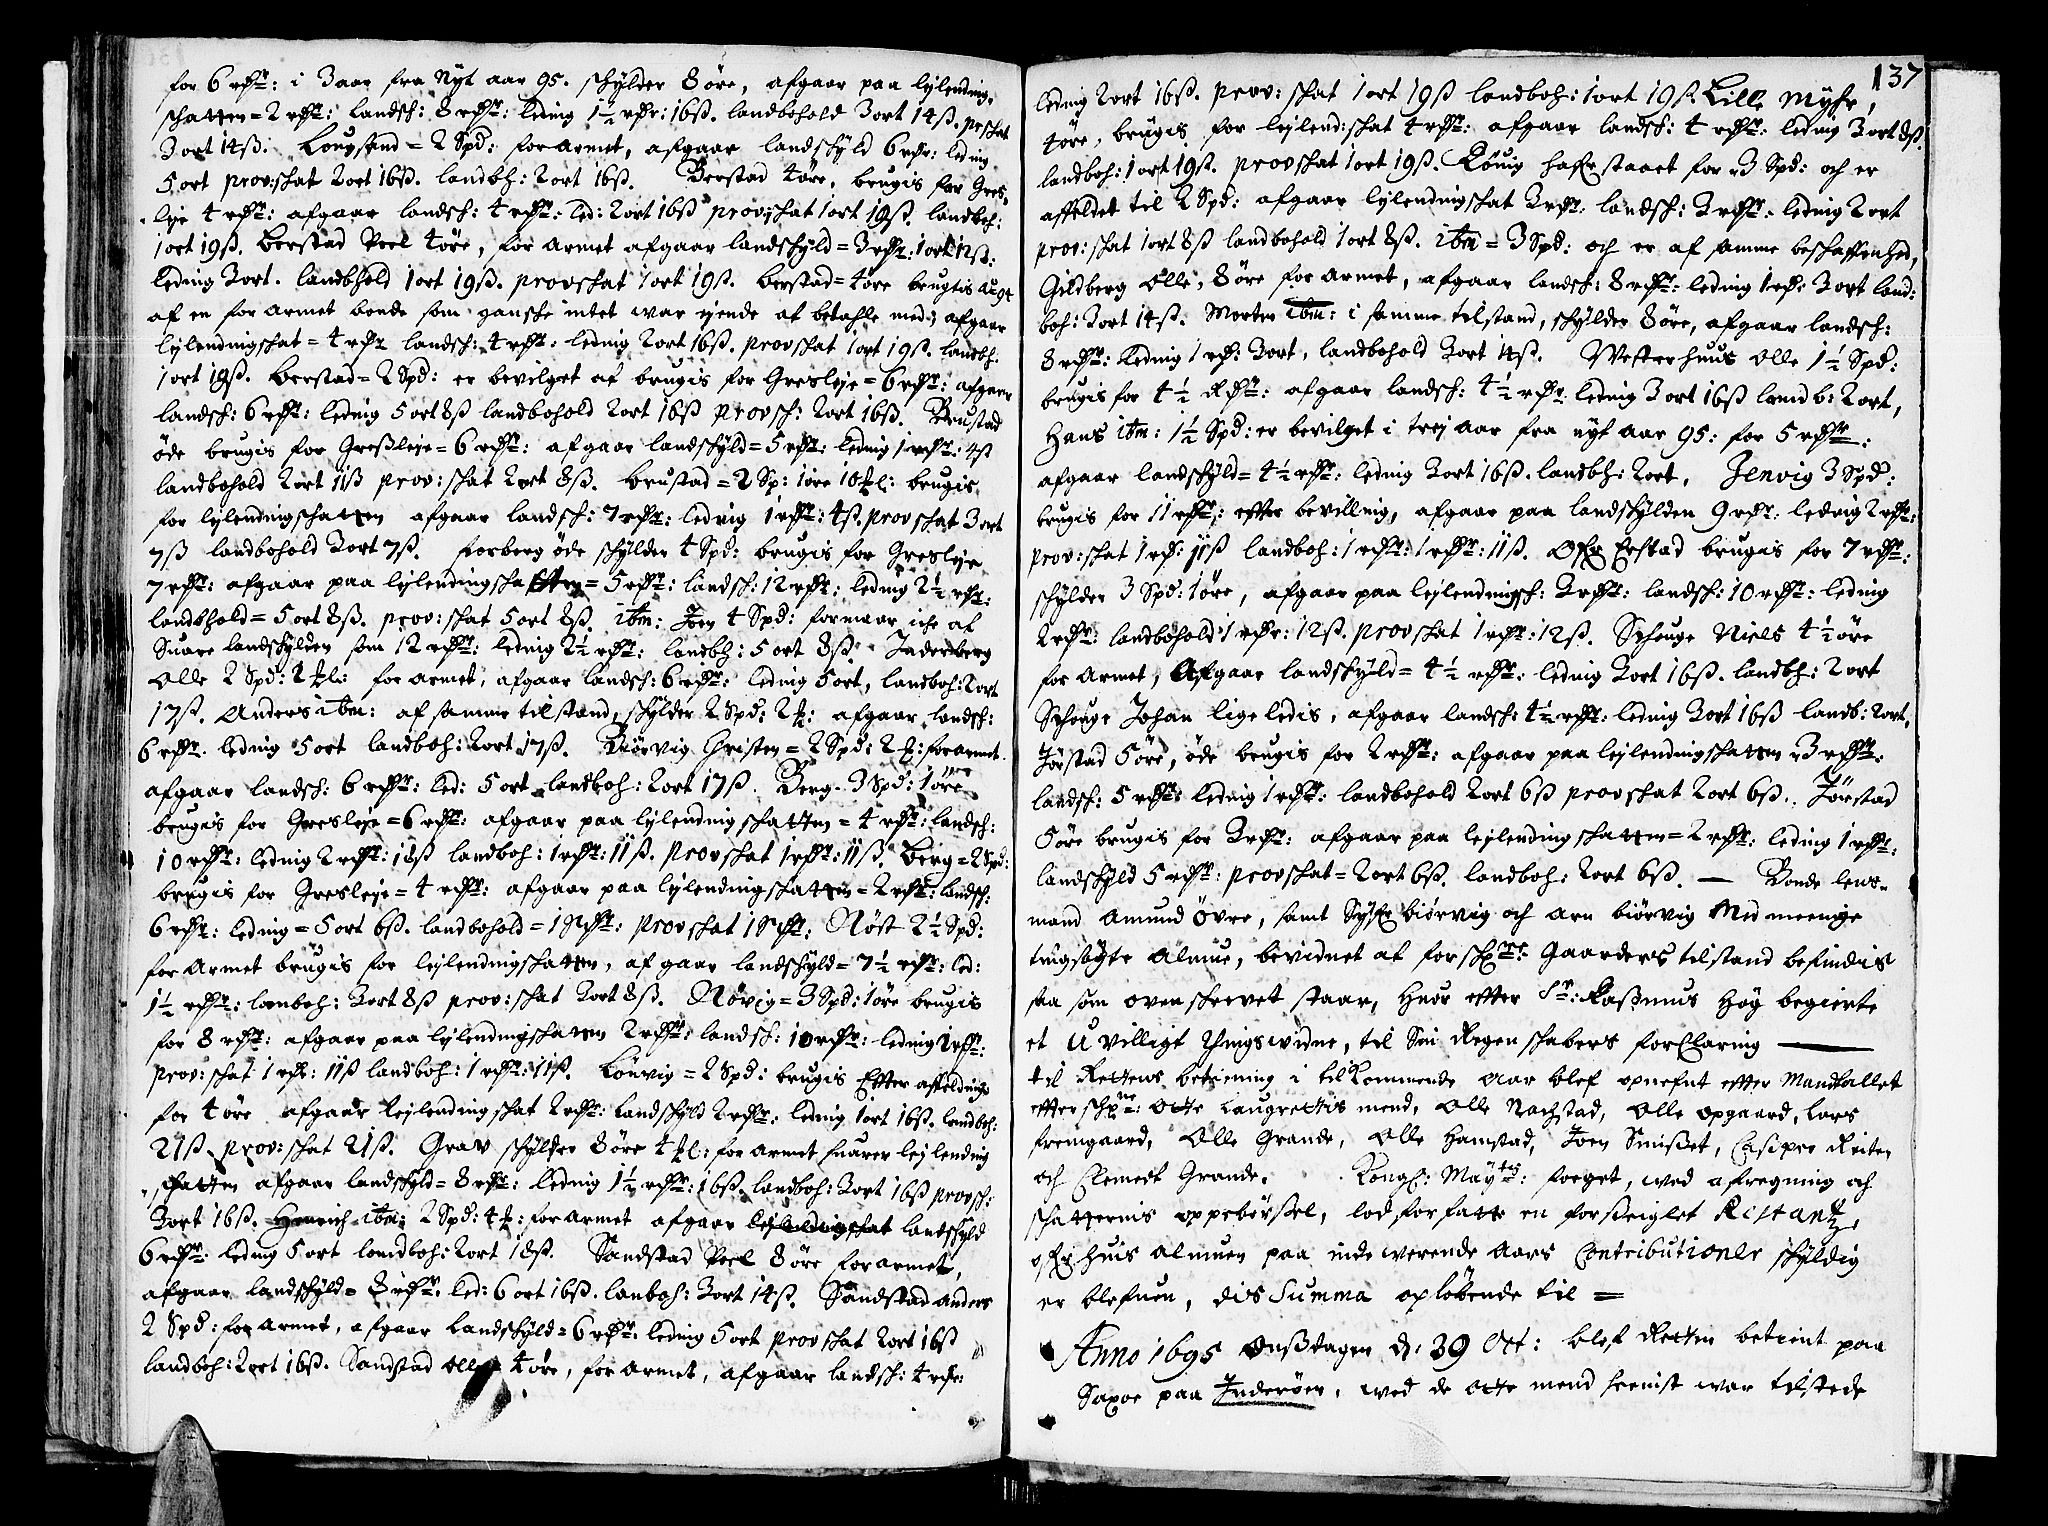 for 6 rdr: i 3 aar fra Nyt aar 95. schylder 8 öre, afgaar paa lejlending,
schatten = 2 rdr: landsch: 8 rdr: leding 1½ rdr: 16ß. landbohold 3 ort 14ß. pr schat
3 ort 14ß. Lougsand = 2 Spd: forarmet, afgaar landschyld 6 rdr: leding
5 ort prov: schat 2 ort 16ß. landbh: 2 ort 16ß. Berstad 4 öre, brugis for Gres,
leje 4 rdr: afgaar landsch: 4 rdr: led: 2 ort 16ß provschat 1 ort 19ß. landboh:
1 ort 19ß. Berstad Peel 4 öre, for armet afgaar landschyld = 3 rdr: 1 ort 12ß:
leding 3 ort. landbhold 1 ort 19ß. provschat 1 ort 19ß. Berstad = 4 öre brugtis
af en for armet bonde som gansche intet war ejende at betahle med; afgaar
lejlendingschat = 4 rdr landsch: 4 rdr: leding 2 ort 16ß. provschat 1 ort 19ß. landbh:
1 ort 19ß. Berstad = 2 Spd: er bevilget af brugis for Gresleje = 6 rdr: afgaar
landsch: 6 rdr: leding 5 ort 8ß landbohold 2 ort 16ß provsch: 2 ort 16ß. Brustad
öde brugis for Greßleje = 6 rdr: afgaar landschyld = 5 rdr: leding 1 rdr: 4ß
landbohold 2 ort 11ß prov: schat 2 ort 8ß. Brustad = 2 Sp: 1 öre 10 ℔l: brugis
for lejlendingschatten afgaar landsch: 7 rdr: leding 1 rdr: 4ß. provschat 3 ort
7ß landbohold 3 ort 7ß. Forberg öde schylder 4 Spd: brugis for Gresleje
7 rdr: afgaar paa lejlendingschatten = 5 rdr: landsch: 12 rdr: leding 2½ rdr:
landbhold = 5 ort 8ß. prov: schat 5 ort 8ß. ibm: Joen 4 Spd: formaar iche at
Suare landschylden som 12 rdr: leding 2½ rdr: landbh: 5 ort 8ß. Inderberg
Olle 2 Spd: 2 ℔l: for armet, afgaar landsch: 6 rdr: leding 5 ort, landboh: 2 ort
17ß. Anders ibm: af samme tilstand, schylder 2 Spd: 2 ℔: afgaar landsch:
6 rdr. leding 5 ort landboh: 2 ort 17ß. Biörvig Christen = 2 Spd: 2 ℔: forarmet.
afgaar landsch: 6 rdr: led: 5 ort landboh: 2 ort 17ß. Berg 3 Spd: 1 öre
brugis for Gresleje = 6 rdr: afgaar paa lejlending schatten = 4 rdr: landsch:
10 rdr: leding 2 rdr: 18ß landboh: 1 rdr: 11ß. provschat 1 rdr: 11ß. Berg = 2 Spd:
brugis for Gresleje = 4 rdr: afgaar paa lejlendingschatten = 2 rdr: landsch:
6 rdr: leding = 5 ort 6ß. landbohold = 1 Rdr: provschat 1 Rdr: Röst 2½ Spd:
for armet brugis for lejlendingschatten, afgaar landschyld = 7½ rdr: led:
1½ rdr: lanboh: 3 ort 8ß prov: schat 3 ort 8ß. Rövig = 3 Spd: 1 öre brugis
for 8 rdr: afgaar paa lejlendingschatten 2 rdr: landsch: 10 rdr: leding 2 rdr:
prov: schat 1 rdr: 11ß landboh: 1 rdr: 11ß. Löuvig = 2 Spd: brugis Efter affelding
for 4 öre afgaar Lejlendingschat 2 rdr: Landschyld 2 rdr: leding 1 ort 16ß. landboh:
21ß prov: schat 21ß. Grav schylder 8 öre 4 ℔l: for armet suarer lejlending
schatten afgaar landschyld = 8 rdr: leding 1½ rdr: 16ß. landboh: 3 ort 16ß provsch:
3 ort 16ß. Henrich ibm: 2 Spd: 4 ℔: forarmet afgaar lejlendingschat landschyld
6 rdr: leding 5 ort landboh: 2 ort 18ß. Sandstad Peel 8 öre forarmet,
afgaar landschyld = 8 rdr. led: 6 ort 16ß. lanboh: 3 ort 14ß. Sandstad Anders
2 Spd: for armet, afgaar Landschyld = 6 rdr: leding 5 ort provschat 2 ort 16ß
landboh: 2 ort 16ß. Sandstad Olle 4 öre, for armet, afgaar landsch: 4 rdr:
137
leding 2 ort 16ß. prov: schat 1 ort 19ß landboh: 1 ort 19ß Lille Myhr,
4 öre, brugis for lejlend: schat 4 rdr: afgaar landsch: 4 rdr: leding 3 ort 8ß.
landboh: 1 ort 19ß. provschat 1 ort 19ß. Löuig hafr staaet for 3 Spd: och er
affeldet til 2 Spd: afgaar lejlendingschat 3 rdr: landsch: 3 rdr: leding 2 ort
prov: schat 1 ort 8ß landbohold 1 ort 8ß. ibm = 3 Spd: och er af samme beschaffenhed,
Gildberg Olle, 8 öre for armet, afgaar landsch: 8 rdr: leding 1 rdr: 3 ort land:
boh: 3 ort 14ß. Morten ibm: i samme tilstand, schylder 8 öre, afgaar landsch:
8 rdr: Leding 1 rdr: 3 ort, landbohold 3 ort 14ß. Westerhuus Olle 1½ Spd:
brugis for 4½ Rdr: afgaar landsch: 4½ rdr leding 3 ort 16ß landb: 2 ort,
Hans ibm: 1½ Spd: er bevilget i trej aar fra nyt aar 95: for 5 rdr:
afgaar landschyld = 4½ rdr: leding 3 ort 16ß. landbh: 2 ort, Jenvig 3 Spd:
brugis for 11 rdr: efter bevilling, afgaar paa landschylden 9 rdr: leding 2 rdr:
prov: schat 1 rdr: 11ß landboh: 1 rdr: 1 rdr: 11ß. Ofr Erstad brugis for 7 rdr:
schylder 3 Spd: 1 öre, afgaar paa lejlendingsch: 3 rdr: landsch: 10 rdr: leding
2 rdr: landbohold 1 rdr: 12ß. provschat 1 rdr: 12ß. Schouge Niels 4½ öre
for armet, Afgaar landschyld = 4½ rdr: leding 3 ort 16ß. landbh: 2 ort
Schouge Johan lige ledis, afgaar landsch: 4½ rdr: leding 3 ort 16ß landb: 2 ort,
Jörstad 5 öre, öde brugis for 2 rdr: afgaar paa lejlendingschatten 3 rdr:
landsch: 5 rdr: leding 1 rdr: landbohold 2 ort 6ß provschat 2 ort 6ß. Jörstad
5 öre brugis for 3 rdr: afgaar paa lejlendingschatten = 2 rdr: leding 1 rdr:
landschyld 5 rdr: provschat = 2 ort 6ß. landboh: 2 ort 6ß. — Bonde lens-
mand Amund övre, samt Syfr biörvig och Arn biörvig Med meenige
tingsögte Almue, bevidnet at forschrne: Gaarders tilstand befindis
saa som ovenschrevet staar, Huor effter Sr: Raßmus Høg begierte
et Uvilligt Tingswidne, til Sin Regenschabers forClaring —
til Rettens betiening i tilkommende Aar blef opnefnt effter Mandtallet
effterschrne: otte laugrettis mend, Olle Nachstad, Olle opgaard, Lars
fremgaard, Olle Grande, Olle Hamstad, Joen Smißet, Casper Reiten
och Clemedt Grande. Kongl: Mayts: foeget, wed afregning och
schatternis oppebörßel, lod forfatte en forseiglet Ristantz,
ofr huis Almuen paa indewerende Aars Contributioner schyldig
er blefuen, dis Summa opløbende til =
Anno 1695 Onßdagen d. 29 Oct: blef Retten betient paa
Saxoe paa Inderöen, wed de otte mend seenist war tilstede